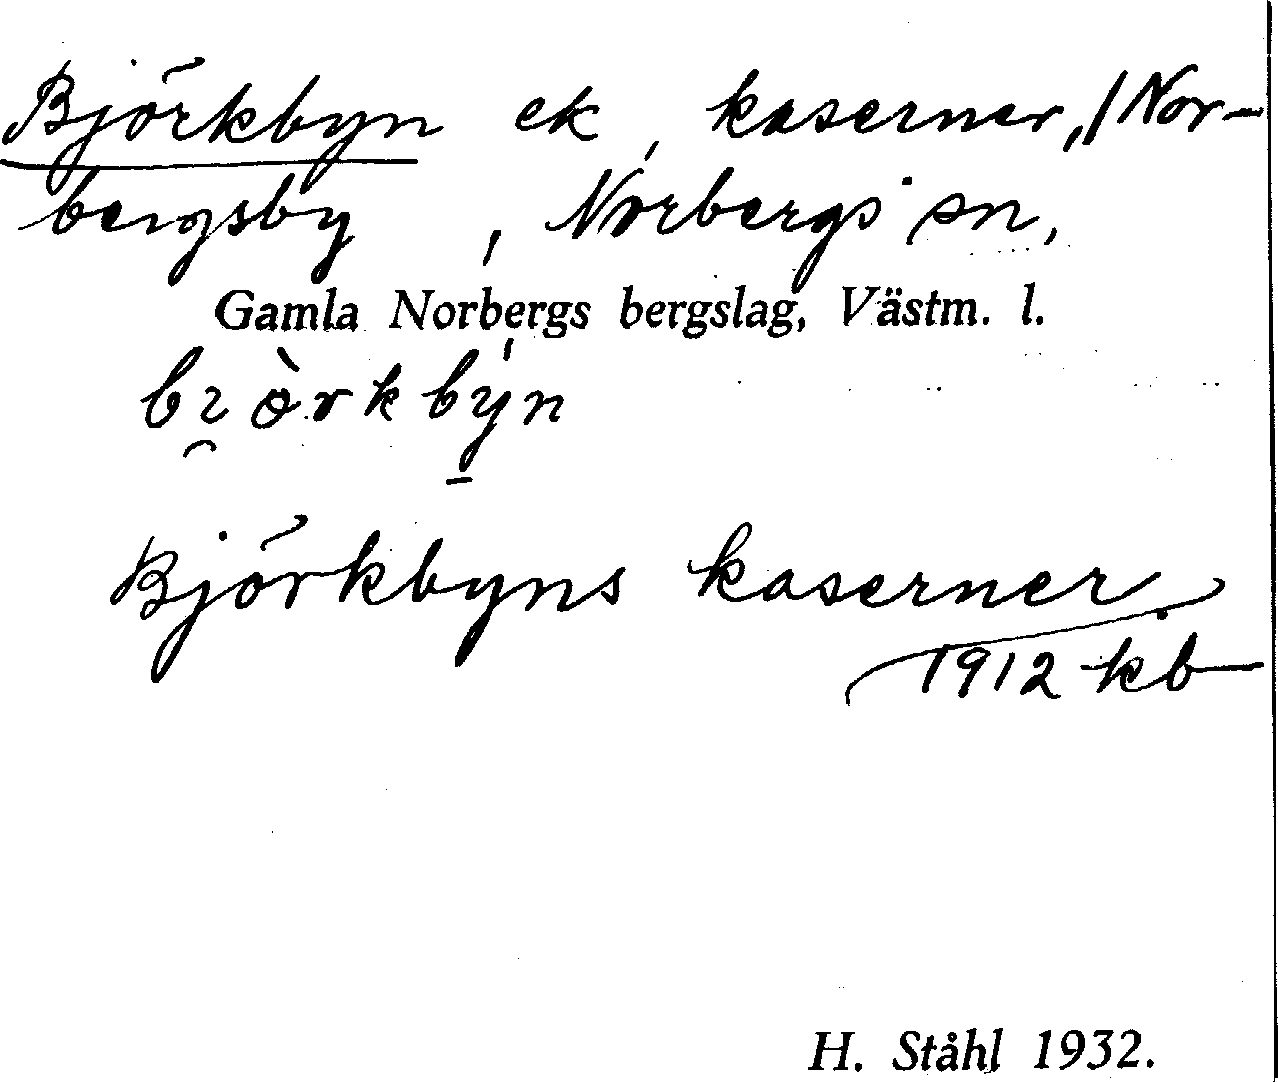 Björkbyn ek, kaserner, /Nor-
bergsby, Norbergs sn,
Gamla Norbergs bergslag, Västm. l.
bi̯òrkbý̠n
Björkbyns kaserner
1912 kb
H. Ståhl 1932.